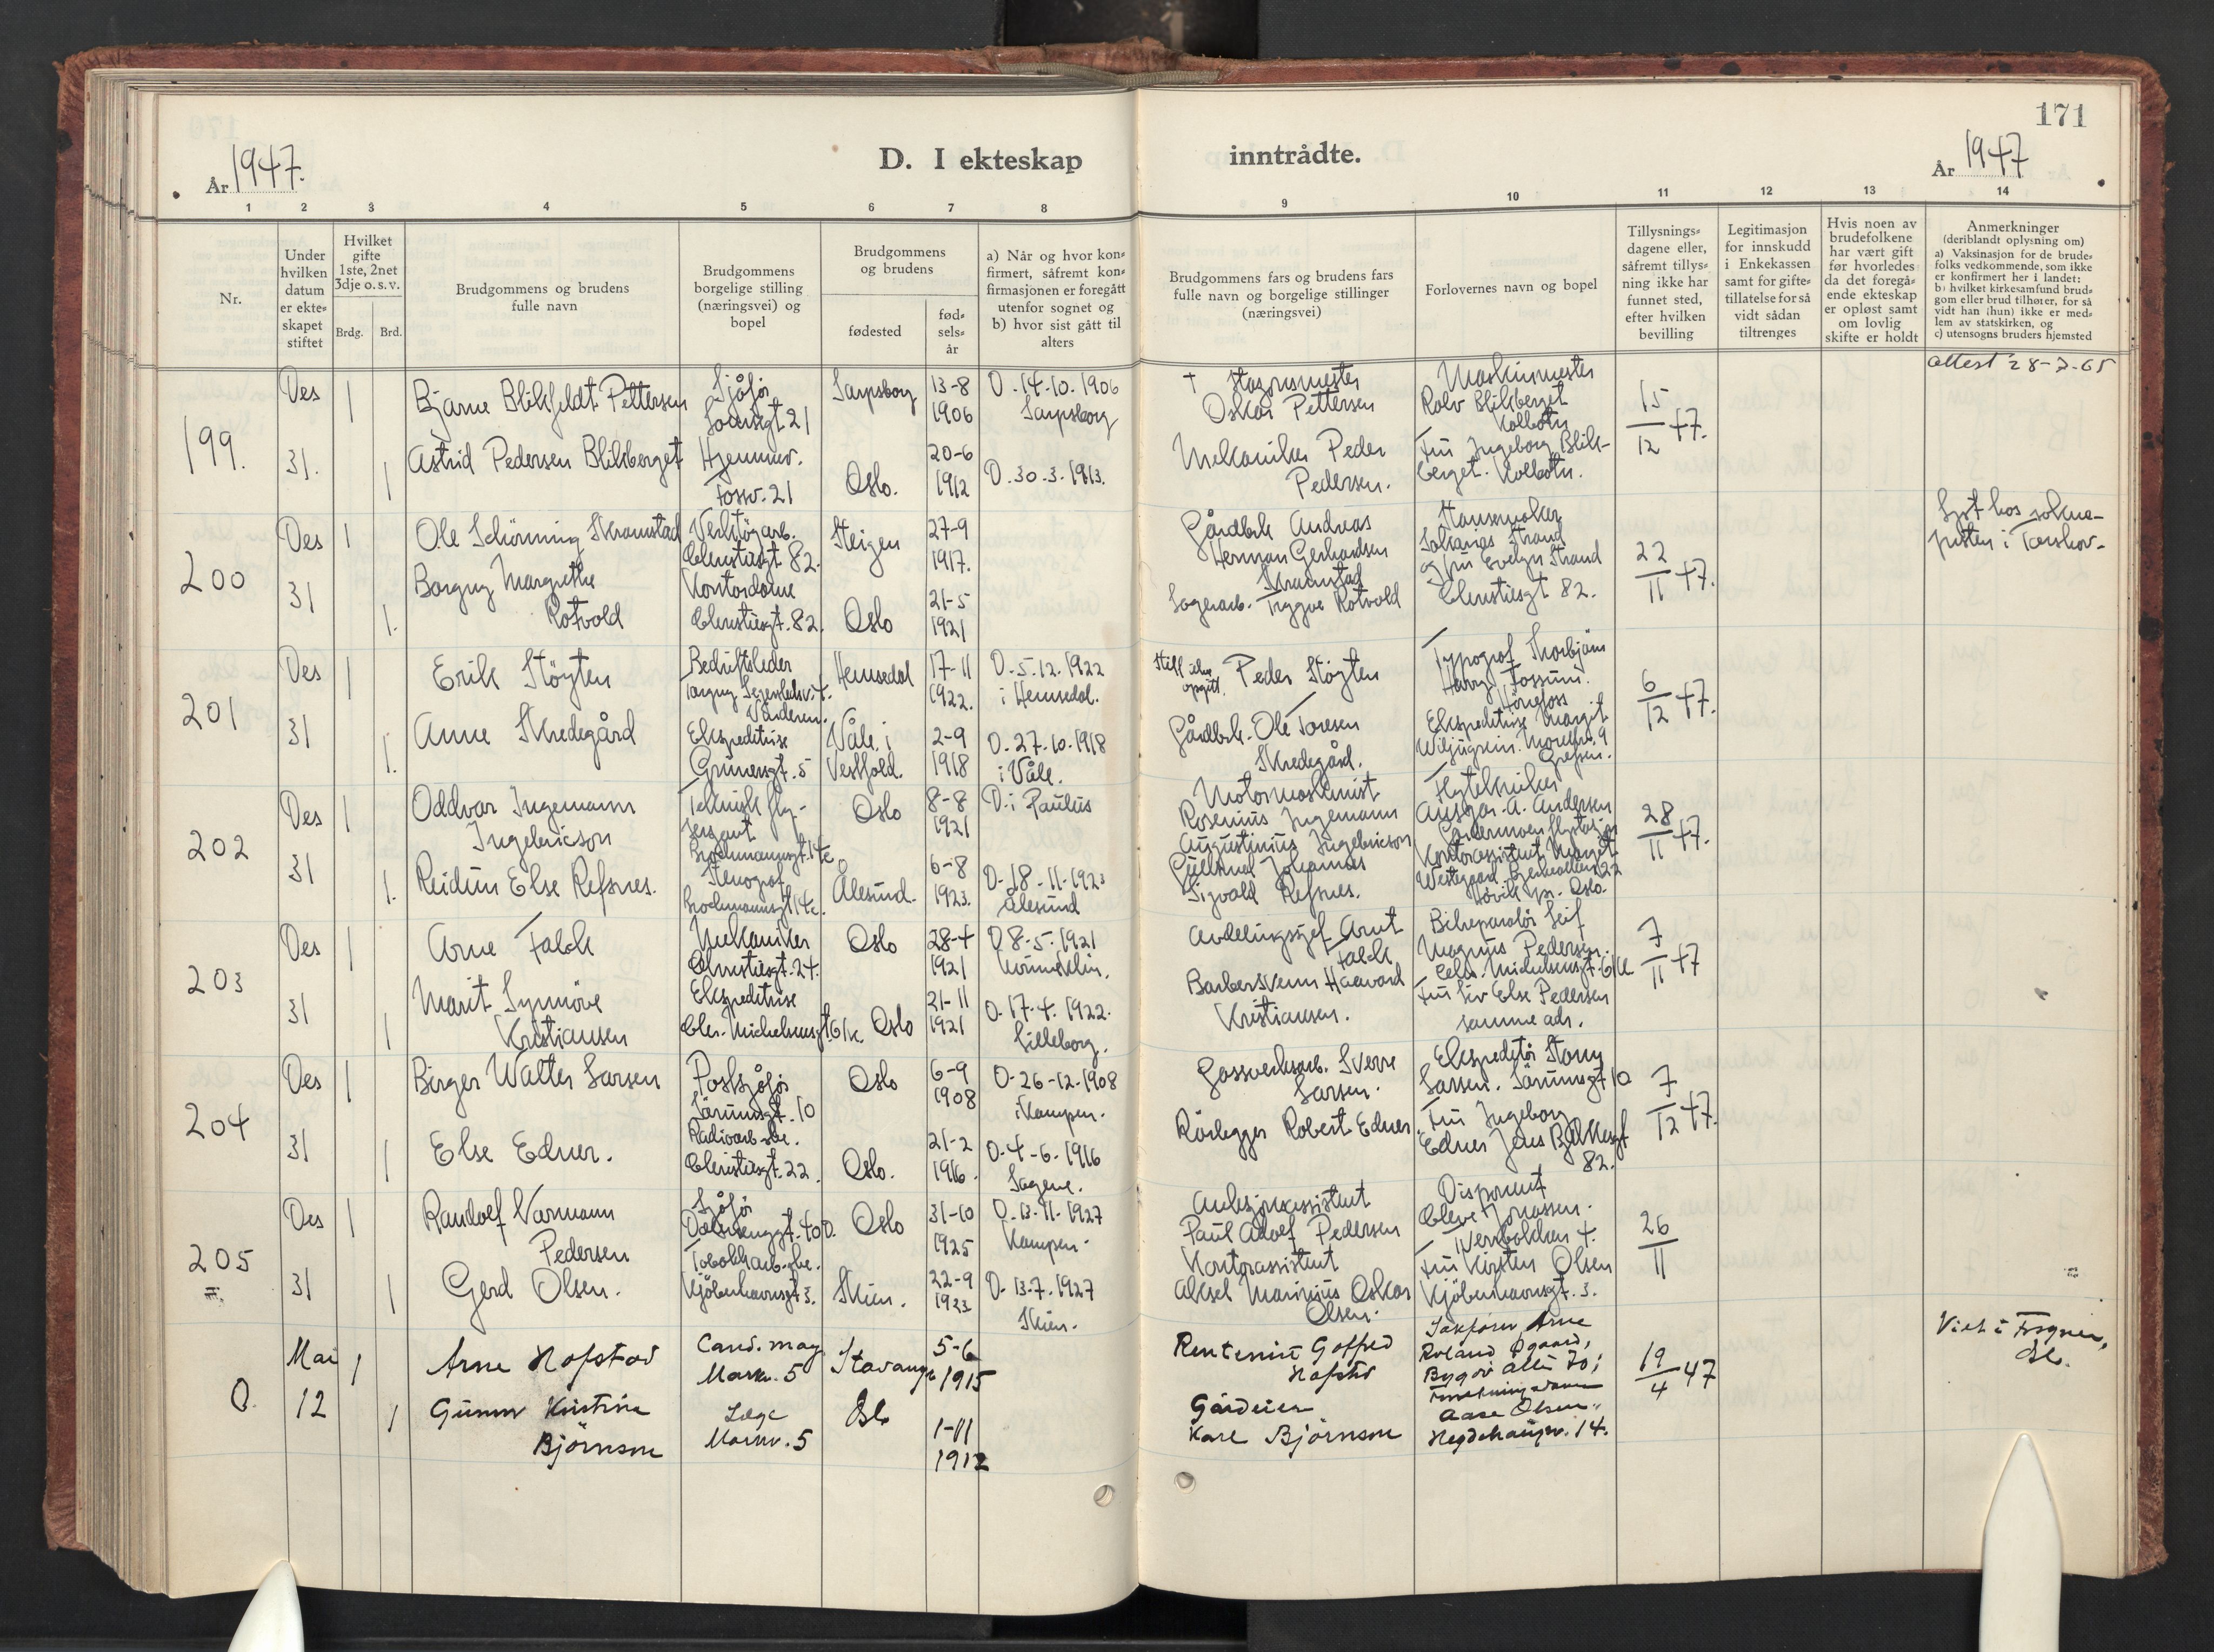 171
År 1947.
D. I ekteskap inntrådte.
År 1947
1 2 3 4 5 6 7 8 9 10 11 12 13 14
Nr.
Under
hvilken
datum
er ekte-
skapet
stiftet
Hvilket
gifte
1ste, 2net
3dje o. s. v.
Brdg. Brd.
Brudgommens og brudens
fulle navn
Brudgommens
borgelige stilling
(næringsvei) og
bopel
Brudgommens
og brudens
fødested
fød-
sels-
år
a) Når og hvor kon-
firmert, såfremt kon-
firmasjonen er foregått
utenfor sognet og
b) hvor sist gått til
alters
Brudgommens fars og brudens fars
fulle navn og borgelige stillinger
(næringsvei)
Forlovernes navn og bopel
Tillysnings-
dagene eller,
såfremt tillys-
ning ikke har
funnet sted,
efter hvilken
bevilling
Legitimasjon
for innskudd
i Enkekassen
samt for gifte-
tillatelse for så
vidt sådan
tiltrenges
Hvis noen av
brudefolkene
har vært gift
før hvorledes
da det foregå-
ende ekteskap
er opløst samt
om lovlig
skifte er holdt
Anmerkninger
(deriblandt oplysning om)
a) Vaksinasjon for de brude-
folks vedkommende, som ikke
er konfirmert her i landet:
b) hvilket kirkesamfund brud-
gom eller brud tilhører, for så
vidt han (hun) ikke er med-
lem av statskirken, og
c) utensogns bruders hjemsted
199.
Des
31.
1
1
Bjarne Blikfeldt Pettersen
Astrid Pedersen Blikberget
Sjåfør
21
Hjemmev.
Fossv. 21
Sarpsborg
Oslo.
13-8
1906
20-6
1912
D. 14-10. 1906
Sarpsborg
D. 30. 3. 1913.
†
Oskar Pettersen
Mekaniker Peder
Pedersen.
Maskinmester
Rolv Blikberget
Kolbotn
Fru Ingeborg Blik-
berget. Kolbotn.
15
12 47.
attest 28-7-65
200
Des
31
1
1.
Ole Schönning Skramstad
Borgny Margrethe
Rotvold
Verktøyarb.
Chrstiesgt 82.
Kontordame
Chrstiesgt. 82.
Steigen
Oslo
27-9
1917.
21-5
1921
Gårdbr. Andreas
Herman Gerhardsen
Skramstad
Lagerarb. Trygve Rotvold
Strand
og fru Evelyn Strand
Chrstiesgt 82.
22
11 47.
Lyst hos sokne-
presten i Torshov.
201
Des
31
1
1.
Erik Støyten
Anne Skredegård
Bedriftsleder
Vinderen.
Ekspeditrise
Grünersgt. 5
Hemsedal
Våle i
Vestfold.
17-11
1922.
2-9
1918
D. 5. 12. 1922
i Hemsedal.
D. 27. 10. 1918
i Våle.
Still. ikke
opgitt. Peder Støyten
Gårdbr. Ole Toresen
Skredegård.
Typograf Thorbjörn
Harry Fossum.
Hönefoss
Ekspeditrise Margit
Grefsen.
6
12 47.
202
Des
31
1
1.
Oddvar Ingemann
Ingebricson
Reidun Else Refsnes.
Teknisk fly-
sersjant
Brochmannsgt. 14c
Stenograf
Brochmannsgt 14c.
Oslo
Ålesund.
8-8
1921
6-8
1923.
D. i Paulus
D. 18-11-1923
Ålesund
Motormaskinist
Rosenius Ingemann
Augustinius Ingebricson
Johannes
Sigvald Refsnes.
Flytekniker
Ansgar A. Andersen
Gardermoen flystasjon
Kontorassistent Margit
Høvik pr. Oslo.
28
11 47.
203
Des
31
1
1
Arne Falch
Marit Synnöve
Kristiansen
Mekaniker
Chrstiesgt. 24.
Ekspeditrise
Chr. Michelsensgt. 61c.
Oslo
Oslo
28-4
1921
21-11
1921
D 8-5-1921
D. 17. 4. 1922.
Lilleborg.
Avdelingssjef Arnt
Falch
Barbersvenn Haavard
Kristiansen.
Bilreparatör Leif
Magnus Pedersen.
Chr. Michelsensgt. 61c
Fru Liv Else Pedersen
samme adr.
7
11 47
204
Des
31
1
1
Birger Walter Larsen
Else Edner.
Postsjåfør
Jarunsgt. 10
Radioarb.ske.
Christiesgt. 22.
Oslo
Oslo.
6-9
1908
21-2
1916.
D. 26-12-1908
i Kampen.
D. 4-6. 1916
Sagene.
Gassverksarb. Sverre
Larsen.
Rörlegger Robert Edner.
Ekspeditör
Larsen. 10
Fru Ingeborg
Edner Jens Bjelkesgt
82.
7
12 47.
205
=
Des
31
1
1
Randolf Varmann
Pedersen
Gerd Olsen.
Sjåfør
40 D.
Tobakkarb.ske.
Kjöbenhavnsgt 3.
Oslo
Skien.
31-10
1925
22-9
1923
D. 13. 11. 1927
Kampen.
D. 13-7. 1927
Skien.
Auksjonsassistent
Paul Adolf Pedersen
Kontorassistent
Aksel Marinius Oskar
Olsen.
Disponent
Jonassen.
4.
Fru Kirsten Olsen
Kjöbenhavnsgt. 3.
26
11
O.
Mai
12
1
1
Arne Hofstad
Gunvor Kristine
Björnson
Cand. mag
Markv. 5
Læge
Markv. 5
Stavanger
Oslo
5-6
1915
1-11
1912
Gårdeier
Kare Björnson
Arne
Bygdø Allé 70;
Aase Olsen
Hegdehaugsv. 14.
19
4 47
Viet i Frogner,
Oslo.